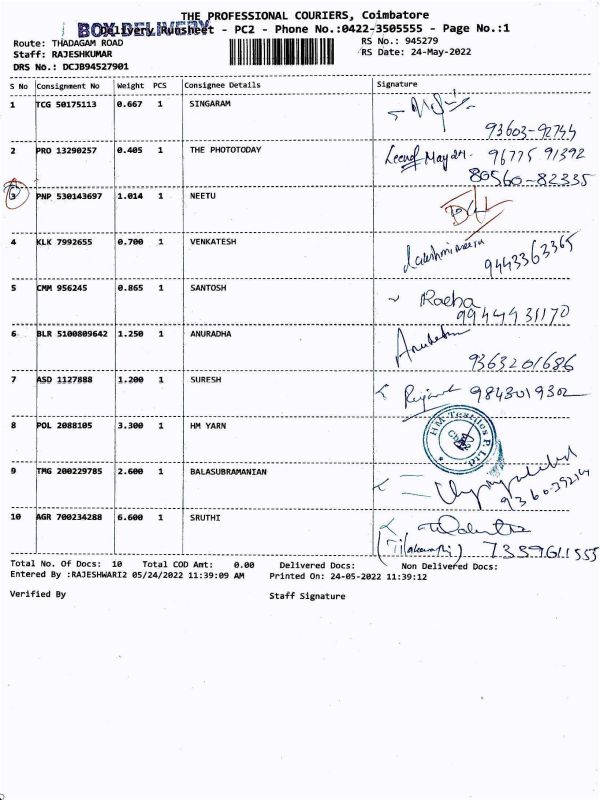 THE PROFESSIONAL COURIERS, Coimbatore
BOX DELIVERY
Delivery Runsheet - PC2 - Phone No.:0422-3505555 - Page No.:1
Route: THADAGAM ROAD
RS No.: 945279
Staff: RAJESHKUMAR
RS Date: 24-May-2022
DRS No.: DCJB94527901
S No Consignment No Weight PCS Consignee Details Signature
1 TCG 50175113 0.667 1 SINGARAM
93603-92744
2 PRO 13290257 0.405 1 THE PHOTOTODAY 96775 91392
80560-82335
3 PNP 530143697 1.014 1 NEETU
4 KLK 7992655 0.700 1 VENKATESH
9443363365
5 CMM 956245 0.865 1 SANTOSH Radha
9944431170
6 BLR 5100809642 1.250 1 ANURADHA
9363201686
7 ASD 1127888 1.200 1 SURESH 9843019302
8 POL 2088105 3.300 1 HM YARN HM Textiles P. Ltd
9 TMG 200229785 2.600 1 BALASUBRAMANIAN
10 AGR 700234288 6.600 1 SRUTHI
7339611555
Total No. Of Docs: 10 Total COD Amt: 0.00 Delivered Docs: Non Delivered Docs:
Entered By :RAJESHWARI2 05/24/2022 11:39:09 AM Printed On: 24-05-2022 11:39:12
Verified By Staff Signature